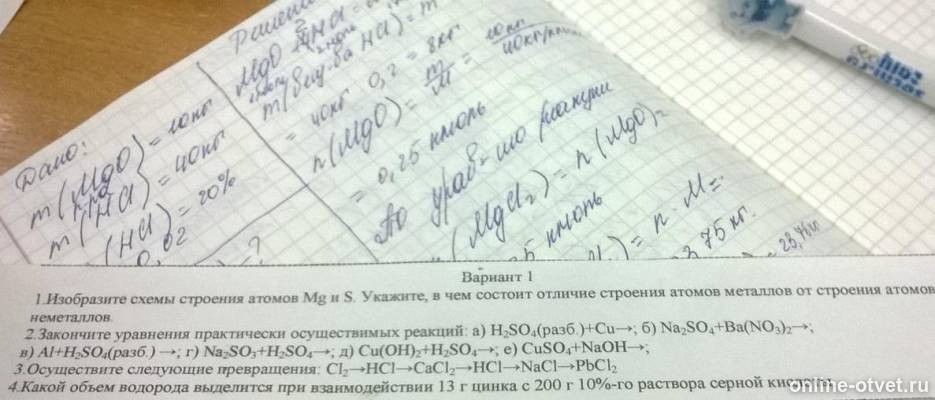 Решени
MgO + 2HCl =
Дано:
m(MgO) = 10 кг
m (HCl) = 40 кг
(HCl) = 20%
0,2
m(
HCl) = m
= 40 кг 0,2 = 8 кг
n(MgO) = m/M = 10 кг / 40 кг/
= 0,25 кмоль
По уравн-ию реакции
(MgCl₂) = n(MgO) =
кмоль
) = n · M =
75 кг.
Вариант 1
1.Изобразите схемы строения атомов Mg и S. Укажите, в чем состоит отличие строения атомов металлов от строения атомов
неметаллов.
2.Закончите уравнения практически осуществимых реакций: а) H₂SO₄(разб.)+Cu→; б) Na₂SO₄+Ba(NO₃)₂→;
в) Al+H₂SO₄(разб.) →; г) Na₂SO₃+H₂SO₄→; д) Cu(OH)₂+H₂SO₄→; е) CuSO₄+NaOH→;
3.Осуществите следующие превращения: Cl₂→HCl→CaCl₂→HCl→NaCl→PbCl₂
4.Какой объем водорода выделится при взаимодействии 13 г цинка с 200 г 10%-го раствора серной кислоты
online-otvet.ru